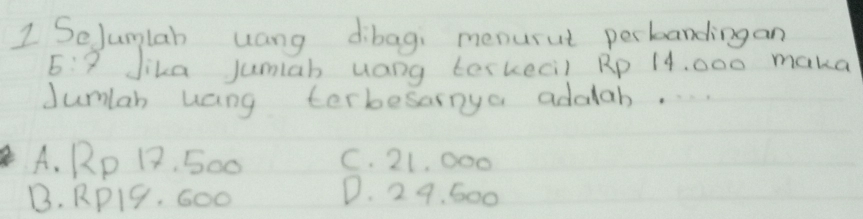 1 Sejumlah uang dibagi menurut perbandingan
5:7 Jika jumlah uang terkecil Rp 14.000 maka
Jumlah uang terbesarnya adalah ....
A. Rp 17.500 C. 21.000
B. Rp 19.600 D. 24.500